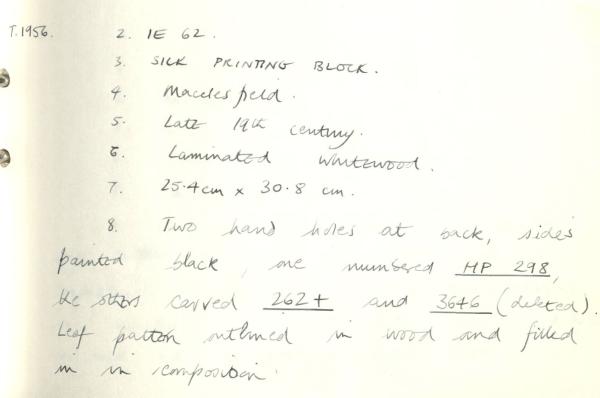 T.1956. 2. IE 62.
3. SILK PRINTING BLOCK.
4. Macclesfield.
5. Late 19th century.
6. Laminated Whitewood.
7. 25.4cm x 30.8 cm.
8. Two hand holes at back, sides
painted black, one numbered HP 298,
the others carved 262+ and 3646 (deleted).
Leaf pattern outlined in wood and filled
in in composition.